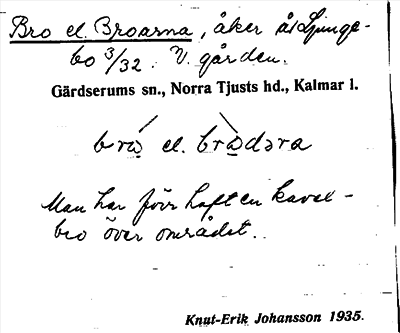 Bro el. Broarna, åker å Ljunge-
bo 3/32. V. gården.
Gärdserums sn., Norra Tjusts hd., Kalmar l.
brω̲ el. brω̲dəra
Man har förr haft en kavel-
bro över området.
Knut-Erik Johansson 1935.